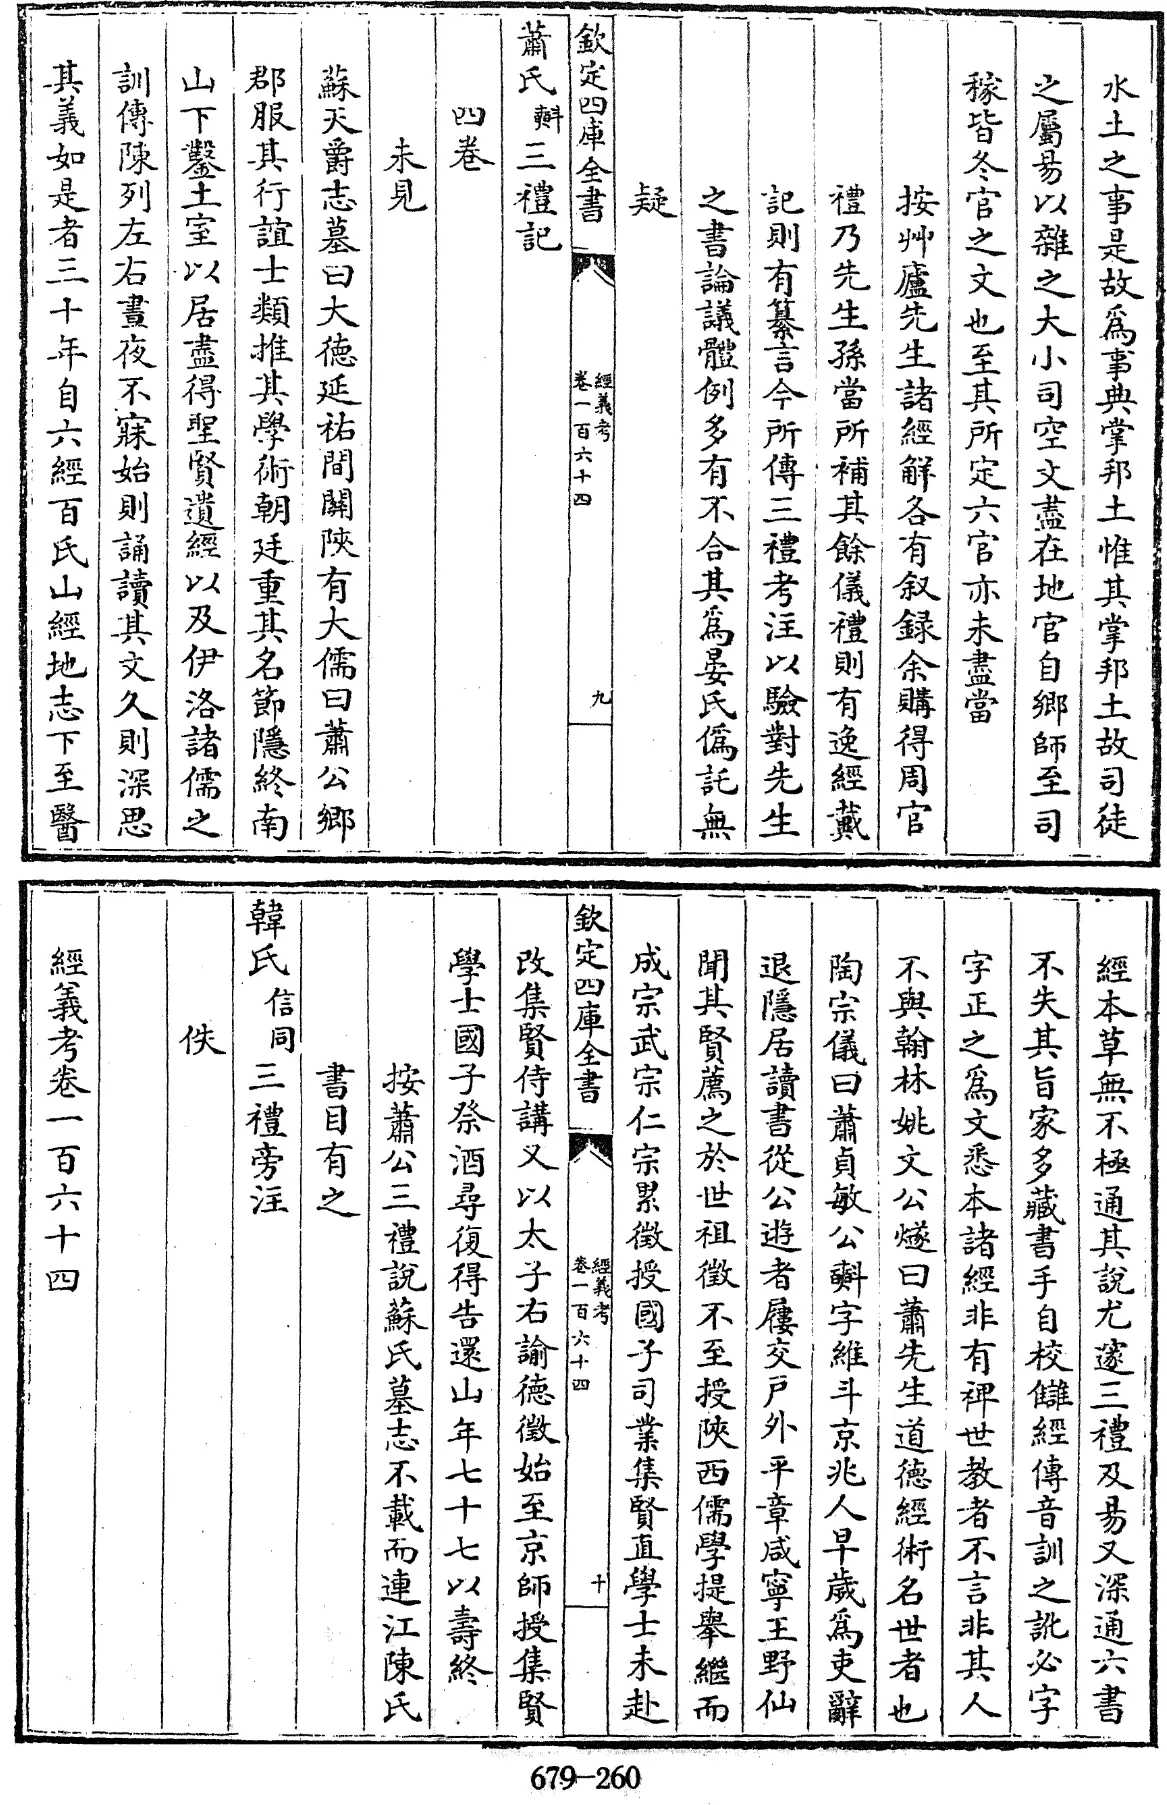 水土之事是故爲事典掌邦土惟其掌邦土故司徒
之屬易以雜之大小司空文盡在地官自鄉師至司
稼皆冬官之文也至其所定六官亦未盡當
按艸廬先生諸經解各有叙録余購得周官
禮乃先生孫當所補其餘儀禮則有逸經戴
記則有纂言今所傳三禮考注以驗對先生
之書論議體例多有不合其爲晏氏僞託無
疑
欽定四庫全書
經義考
卷一百六十四
九
蕭氏𣂏三禮記
四卷
未見
蘇天爵志墓曰大德延祐間關陜有大儒曰蕭公鄉
郡服其行誼士類推其學術朝廷重其名節隱終南
山下鑿土室以居盡得聖賢遺經以及伊洛諸儒之
訓傳陳列左右晝夜不寐始則誦讀其文久則深思
其義如是者三十年自六經百氏山經地志下至醫
經本草無不極通其說尤邃三禮及易又深通六書
不失其旨家多藏書手自校讎經傳音訓之訛必字
字正之爲文悉本諸經非有裨世教者不言非其人
不與翰林姚文公燧曰蕭先生道德經術名世者也
陶宗儀曰蕭貞敏公𣂏字維斗京兆人早歲爲吏辭
退隱居讀書從公遊者屨交戶外平章咸寧王野仙
聞其賢薦之於世祖徵不至授陜西儒學提舉繼而
成宗武宗仁宗累徵授國子司業集賢直學士未赴
欽定四庫全書
經義考
卷一百六十四
十
改集賢侍講又以太子右諭德徵始至京師授集賢
學士國子祭酒尋復得告還山年七十七以壽終
按蕭公三禮說蘇氏墓志不載而連江陳氏
書目有之
韓氏信同三禮旁注
佚
經義考卷一百六十四
679-260